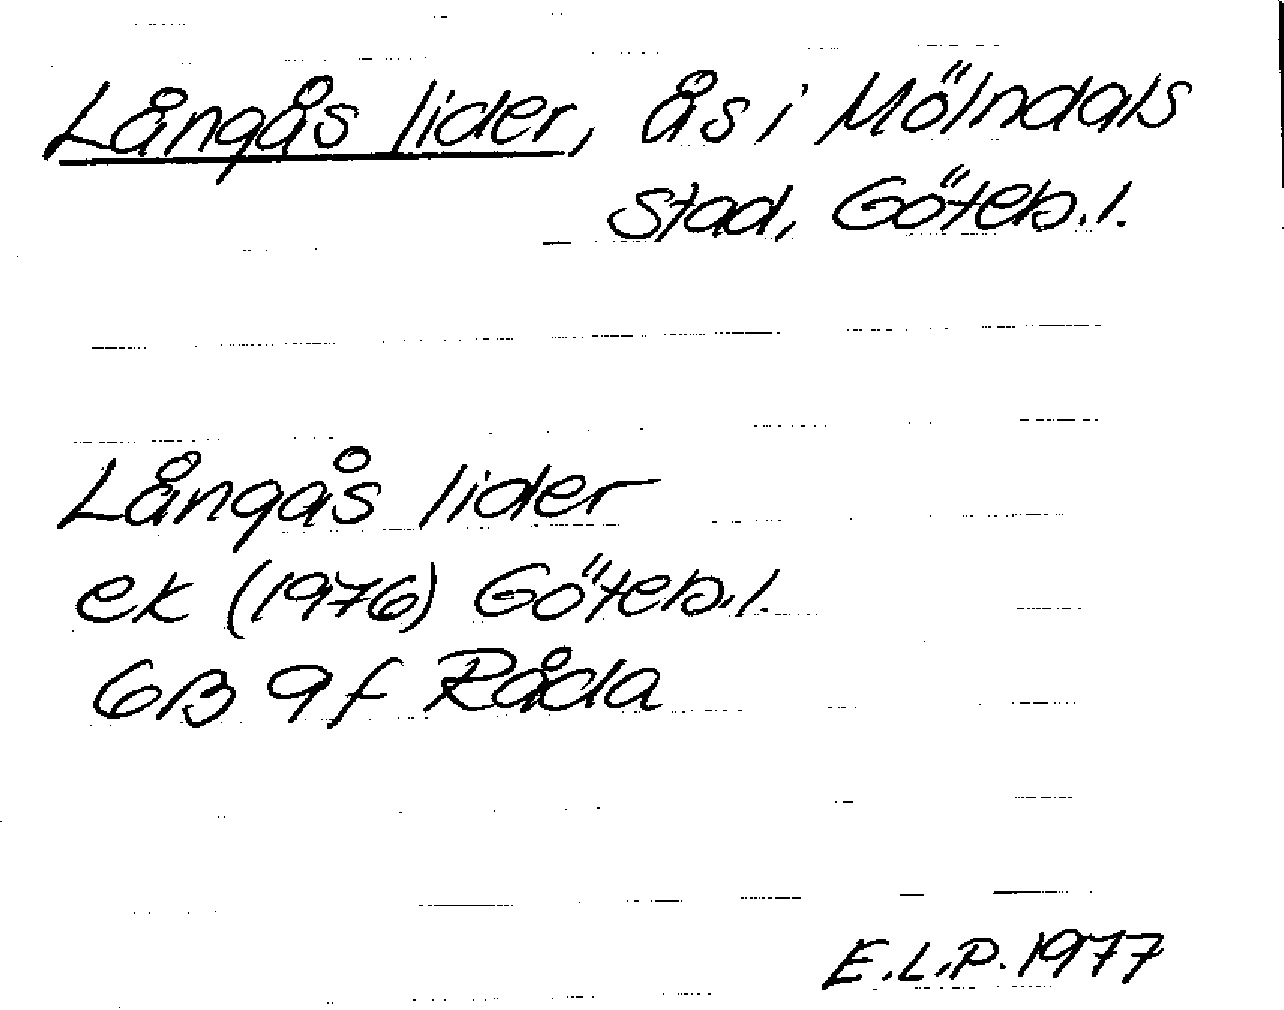 Långås lider, ås i Mölndals
stad, Göteb.l.
Långås lider
ek (1976) Göteb.l.
6B 9f Råda
E.L.P. 1977